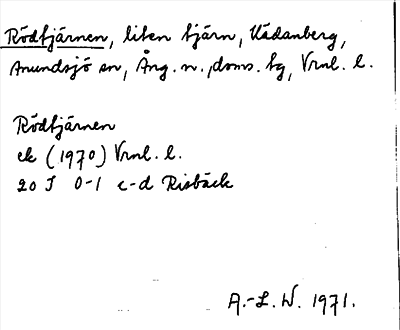 Rödtjärnen, liten tjärn, Kådanberg,
Anundsjö sn, Ång. n. doms. tg, Vrnl. l.
Rödtjärnen
ek (1970) Vrnl. l.
20 J 0-1 c-d Risbäck
A.-L. W. 1971.